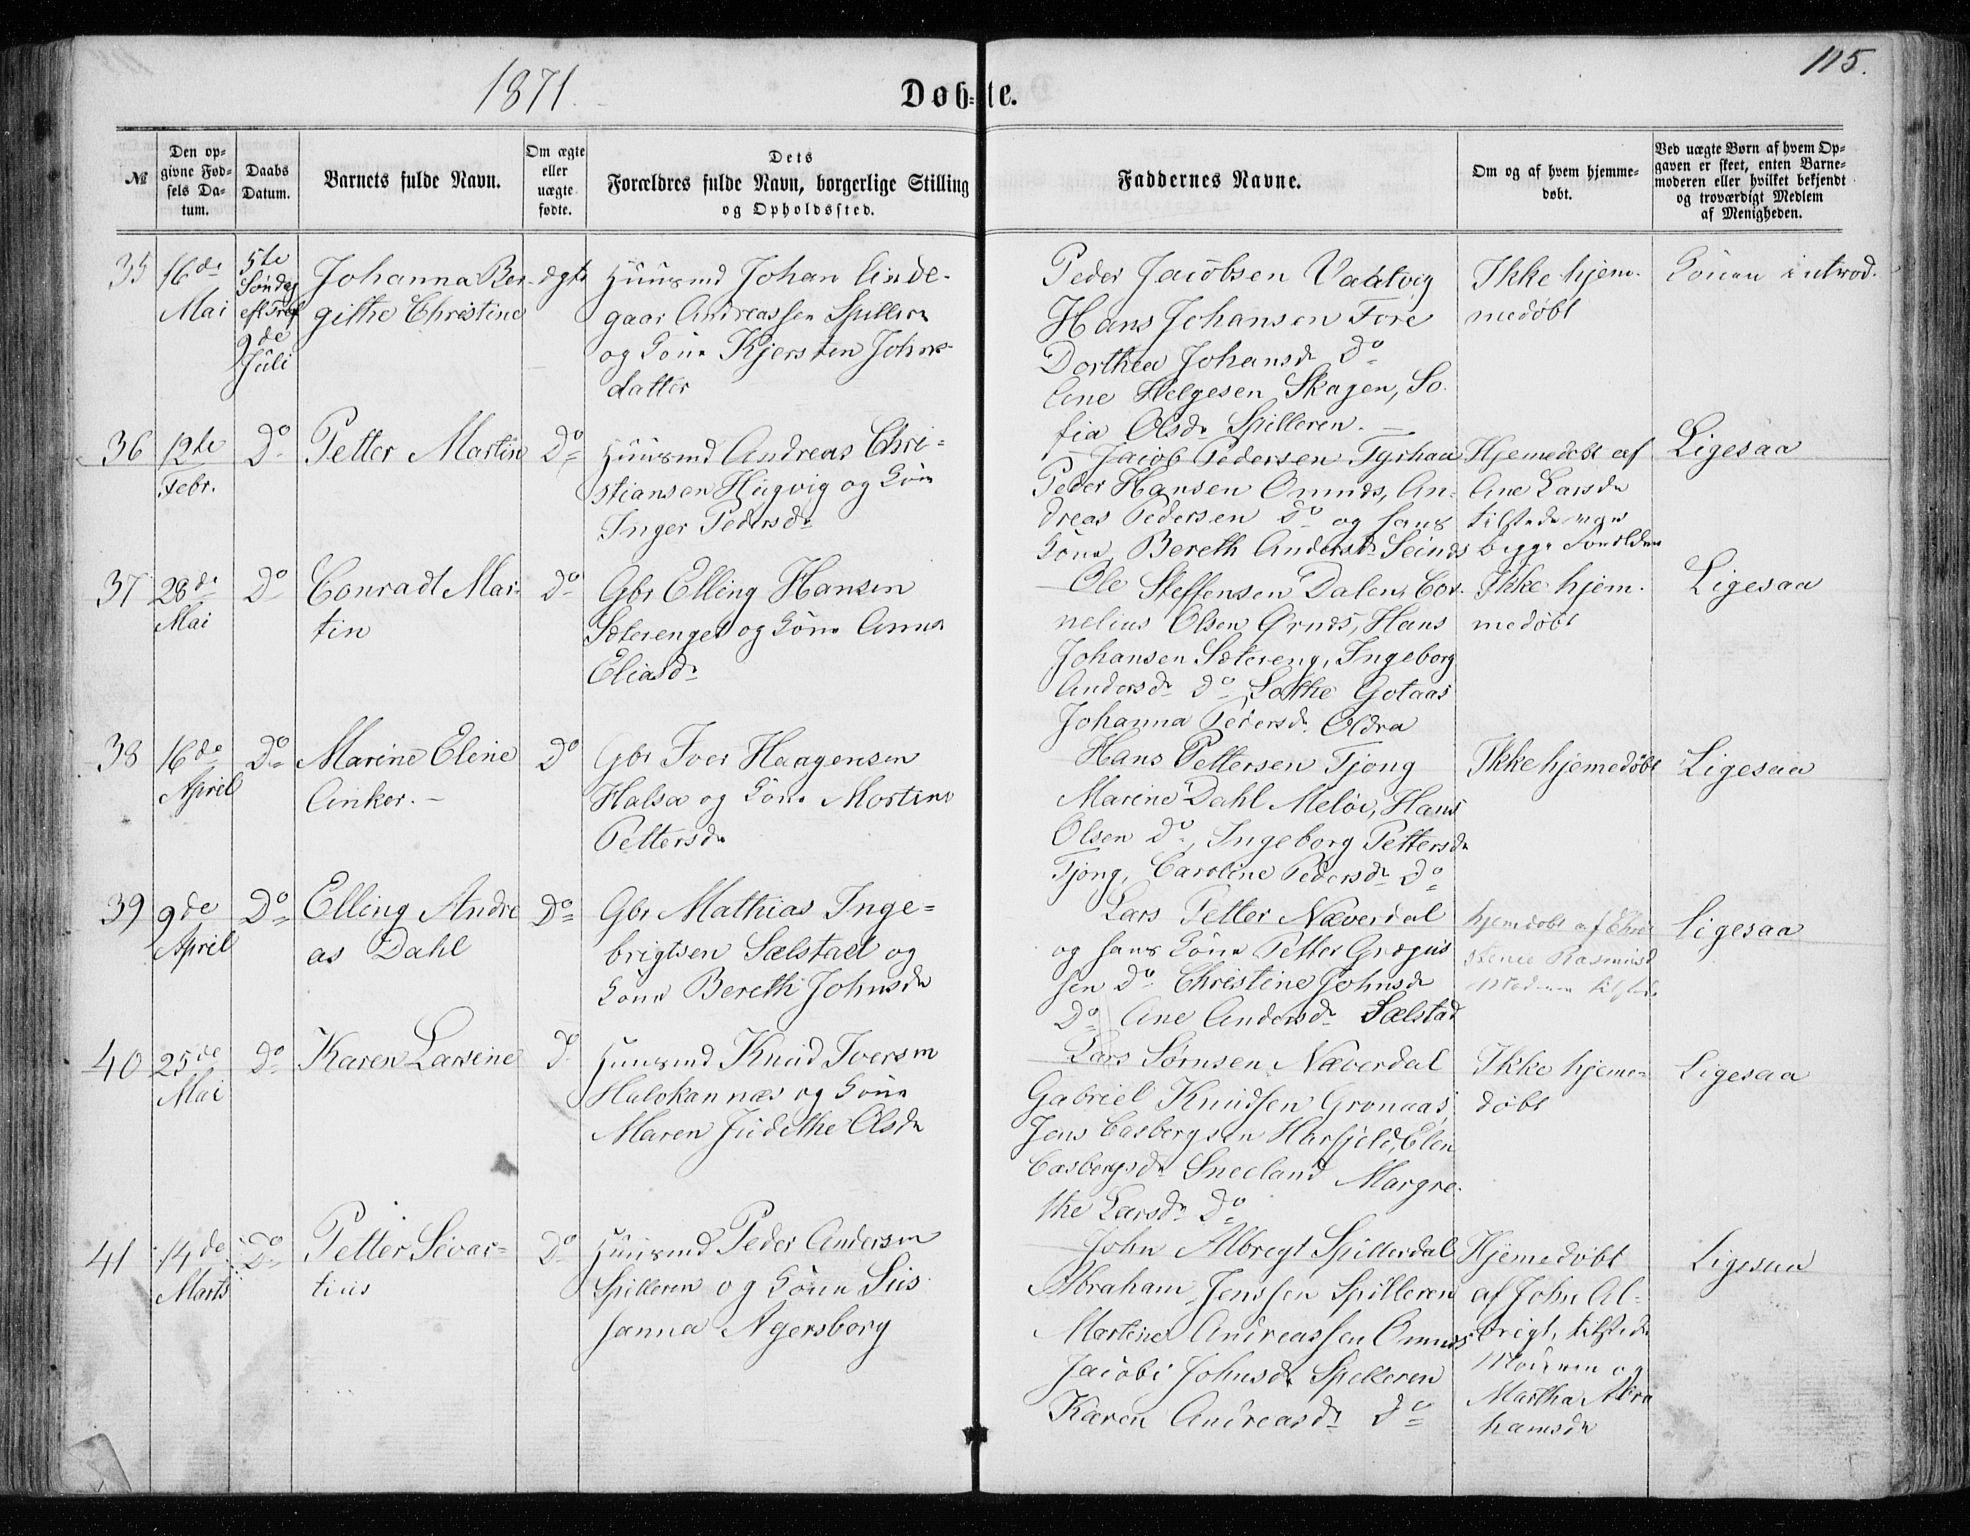 1871.
Døb-te.
115.
№
Den op-
givne Fød-
sels Da-
tum.
Daabs
Datum.
Barnets fulde Navn.
Om ægte
eller
uægte
fødte.
Dets
Forældres fulde Navn, borgerlige Stilling
og Opholdssted.
Faddernes Navne.
Om og af hvem hjemme-
døbt.
Ved uægte Børn af hvem Op-
gaven er skeet, enten Barne-
moderen eller hvilket bekjendt
og troværdigt Medlem
af Menigheden.
35
16de
Mai
5te
Søndag
eft Tref
9de
Juli
Johanna Ber-
githe Christine
ægte
Huusmd Johan Linde-
gaar Andreassen Spilleren
og Kone Kjersten Johns-
datter
Peder Jacobsen Vaatvig
Hans Johansen Fore
Dorthea Johansdr Do
Ane Helgesen Skagen, So-
fia Olsdr Spilleren.
Ikke hjem-
medøbt
Konen introd.
36
12te
Febr.
Do
Petter Martin
Do
Huusmd Andreas Chri-
stiansen Hugvig og Kone
Inger Pedersdr
Jacob Pedersen
Peder Hansen Ornnes, An-
dreas Pedersen Do og hans
Kone, Bereth Andersdr
Hjemedøbt af
Ane Larsdr
tilstede var
begge Forældre
Ligesaa
37
28de
Mai
Do
Conradt Mar-
tin
Do
Gbr Elling Hansen
Sæterenget og Kone Anna
Eliasdr
Ole Steffensen Dalen, Cor-
nelius Olsen Ornes, Hans
Johansen Sætereng, Ingeborg
Andersdr Do Gotaas
Johanna Pedersdr Oldra
Ikke hjem-
medøbt
Ligesaa
38
16de
April
Do
Marine Eline
Anker.
Do
Gbr Iver Haagensen
Halsa og Kone Martine
Pettersdr
Hans Pettersen Tjong
Marine Dahl Meløe, Hans
Olsen Do, Ingeborg Pettersdr
Tjong, Caroline Pedersdr Do
Ikke hjemedøbt
Ligesaa
39
9de
April
Do
Elling Andre
as Dahl
Do
Gbr Mathias Inge-
brigtsen Sælstad og
Kone Bereth Johnsdr
Lars Petter Næverdal
og hans Kone Petter
sen Do Christine Johnsdr
Do Ane Andersdr Sælstad
hjemdøbt af Chri
stence Rasmusd
Moderen tilstede
Ligesaa
40
25de
Mai
Do
Karen Larsine
Do
Huusmd Knud Iversen
Halokannæs og Kone
Maren Judithe Olsdr
Lars Sørnsen Næverdal
Gabriel Knudsen Gronaas
Jens Casbergsen Harfjeld, Elen
Casbergsdr Sneeland Margre-
the Larsdr Do
Ikke hjeme-
døbt
Ligesaa
41
14de
Marts
Do
Petter Sivar-
tius
Do
Huusmd Peder Andersen
Spilleren og Kone Sus-
sanna Agersborg
John Albregt Spillerdal
Abraham Jenssen Spilleren
Martine Andreassen Ornnes
Jacobi Johnsdr Spilleren
Karen Andreasdr Do
Hjemedøbt
af John Al-
brigt, tilstede
Moderen og
Martha Abra
hamsdr
Ligesaa